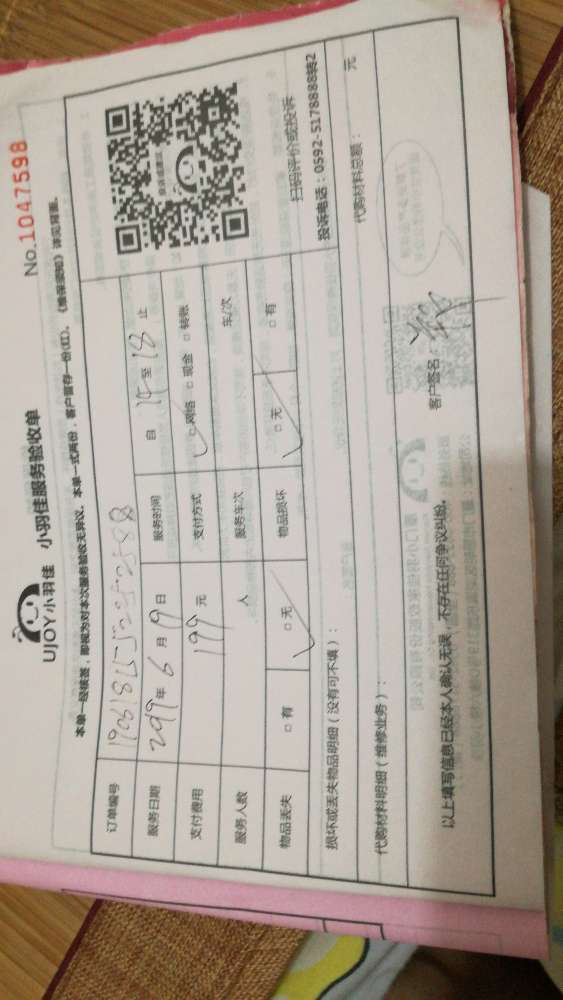 No.1047598
UJOY小羽佳 小羽佳服务验收单
本单一经核签,即视为对本次服务验收无异议。本单一式两份,客户留存一份(红)。《维保须知》详见背面。
订单编号
服务日期 2019年6月19日 服务时间 自14至18止
支付费用 199元 支付方式 □网络 □现金 □转账
服务人数 人 服务车次 车/次
物品丢失 □有 □无 物品损坏 □无 □有
扫码评价或投诉
投诉电话:0592-5178888转2
损坏或丢失物品明细(没有可不填):
代购材料明细(维修业务): 代购材料总额: 元
以上填写信息已经本人确认无误,不存在任何争议纠纷。 客户签名: